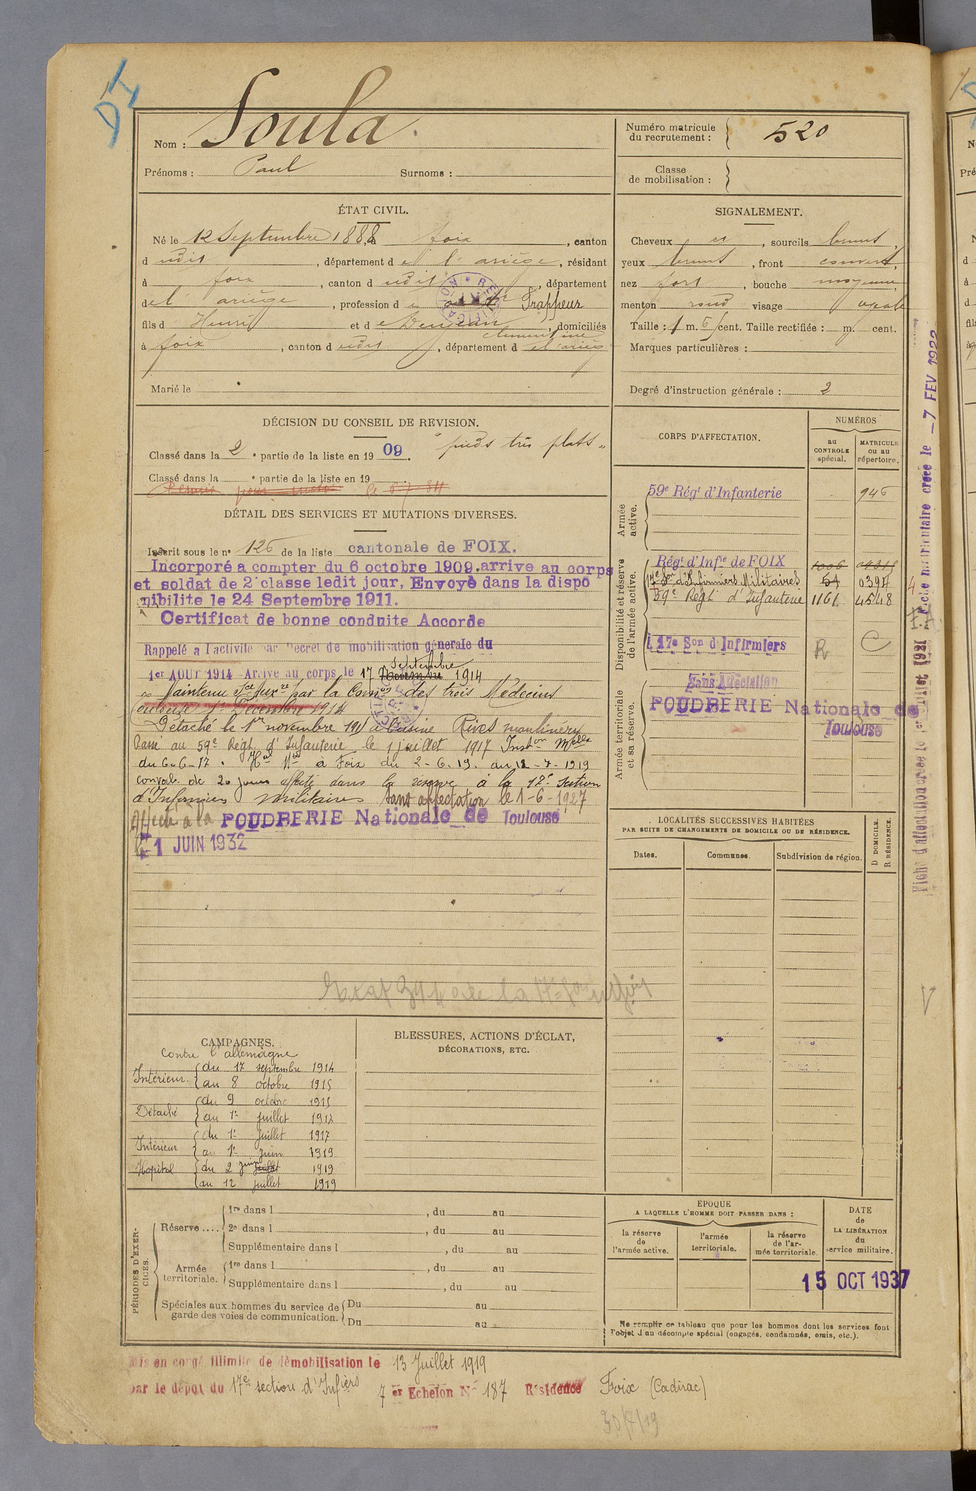 DI
Nom : Soula
Prénoms : Paul Surnoms :
Numéro matricule du recrutement : 520
Classe de mobilisation :
ÉTAT CIVIL.
Né le 12 Septembre 1888, à foix, canton
d udit, département de l'ariège, résidant
à foix, canton d udit, département
de l ariège, profession d Frappeur
fils d Henri et de , domiciliés
à foix, canton d udit, département d
Marié le
SIGNALEMENT.
Cheveux et, sourcils bruns,
yeux bruns, front couvert,
nez fort, bouche moyenne,
menton rond visage ovale
Taille : 1 m. cent. Taille rectifiée : m. cent.
Marques particulières :
Degré d'instruction générale : 2
DÉCISION DU CONSEIL DE REVISION.
Classé dans la 2e partie de la liste en 1909. "pieds très plats"
Classé dans la partie de la liste en 19
DÉTAIL DES SERVICES ET MUTATIONS DIVERSES.
Inscrit sous le n° 126 de la liste cantonale de FOIX.
Incorporé a compter du 6 octobre 1909. arrive au corps
et soldat de 2e classe ledit jour, Envoyé dans la dispo
nibilite le 24 Septembre 1911.
Certificat de bonne conduite Accorde
Rappelé a l'activité par Decret de mobilisation générale du
1er AOUT 1914 Arrivé au corps, le 17 Septembre 1914
Maintenu Sce Auxre par la Comon des trois Médecins
Détaché le 1er novembre 1915 à Usine Rives
Passé au 59e Régt d'Infanterie le 1 juillet 1917 Inston Mlle
du 6-6-17. Hal Mre à Foix du 2-6-19. au 12-7-1919
convale de 20 jours affecté dans la réserve à la 17e Section
d'Infirmiers militaires Sans affectation le 1-6-1927
Affecté à la POUDRERIE Nationale de Toulouse
1 JUIN 1932
CORPS D'AFFECTATION.
NUMÉROS
au CONTROLE spécial.
MATRICULE ou au répertoire.
Armée active.
59e Régt d'Infanterie 946
Disponibilité et réserve de l'armée active.
Régt d'Infie de FOIX
17e Son d'Infirmiers Militaires 64 0397
59e Régt d'Infanterie 1161 4548
17e Son d'Infirmiers R C
Armée territoriale et sa réserve.
Sans Affectation
POUDRERIE Nationale de
Toulouse
LOCALITÉS SUCCESSIVES HABITÉES
PAR SUITE DE CHANGEMENTS DE DOMICILE OU DE RÉSIDENCE.
Dates. Communes. Subdivision de région. D DOMICILE. R RÉSIDENCE.
CAMPAGNES.
Contre l'allemagne
Intérieur { du 17 septembre 1914
au 8 octobre 1915
Détaché { du 9 octobre 1915
au 1er juillet 1917
Intérieur { du 1er juillet 1917
au 1er juin 1919
Hopital { du 2 juin 1919
au 12 juillet 1919
BLESSURES, ACTIONS D'ÉCLAT,
DÉCORATIONS, ETC.
PÉRIODES D'EXERCICES.
Réserve .... { 1re dans l , du au
2e dans l , du au
Supplémentaire dans l , du au
Armée territoriale. { 1re dans l , du au
Supplémentaire dans l , du au
Spéciales aux hommes du service de garde des voies de communication. { Du au
Du au
ÉPOQUE
A LAQUELLE L'HOMME DOIT PASSER DANS :
la réserve de l'armée active.
l'armée territoriale.
la réserve de l'armée territoriale.
DATE DE LA LIBÉRATION du service militaire.
15 OCT 1937
Ne remplir ce tableau que pour les hommes dont les services font
l'objet d'un décompte spécial (engagés, condamnés, omis, etc.).
Mis en congé illimité de démobilisation le 13 Juillet 1919
par le dépot du 17e section d'Infiers 7 er Echelon N° 187 Résidence Foix (Cadirac)
30/7/19